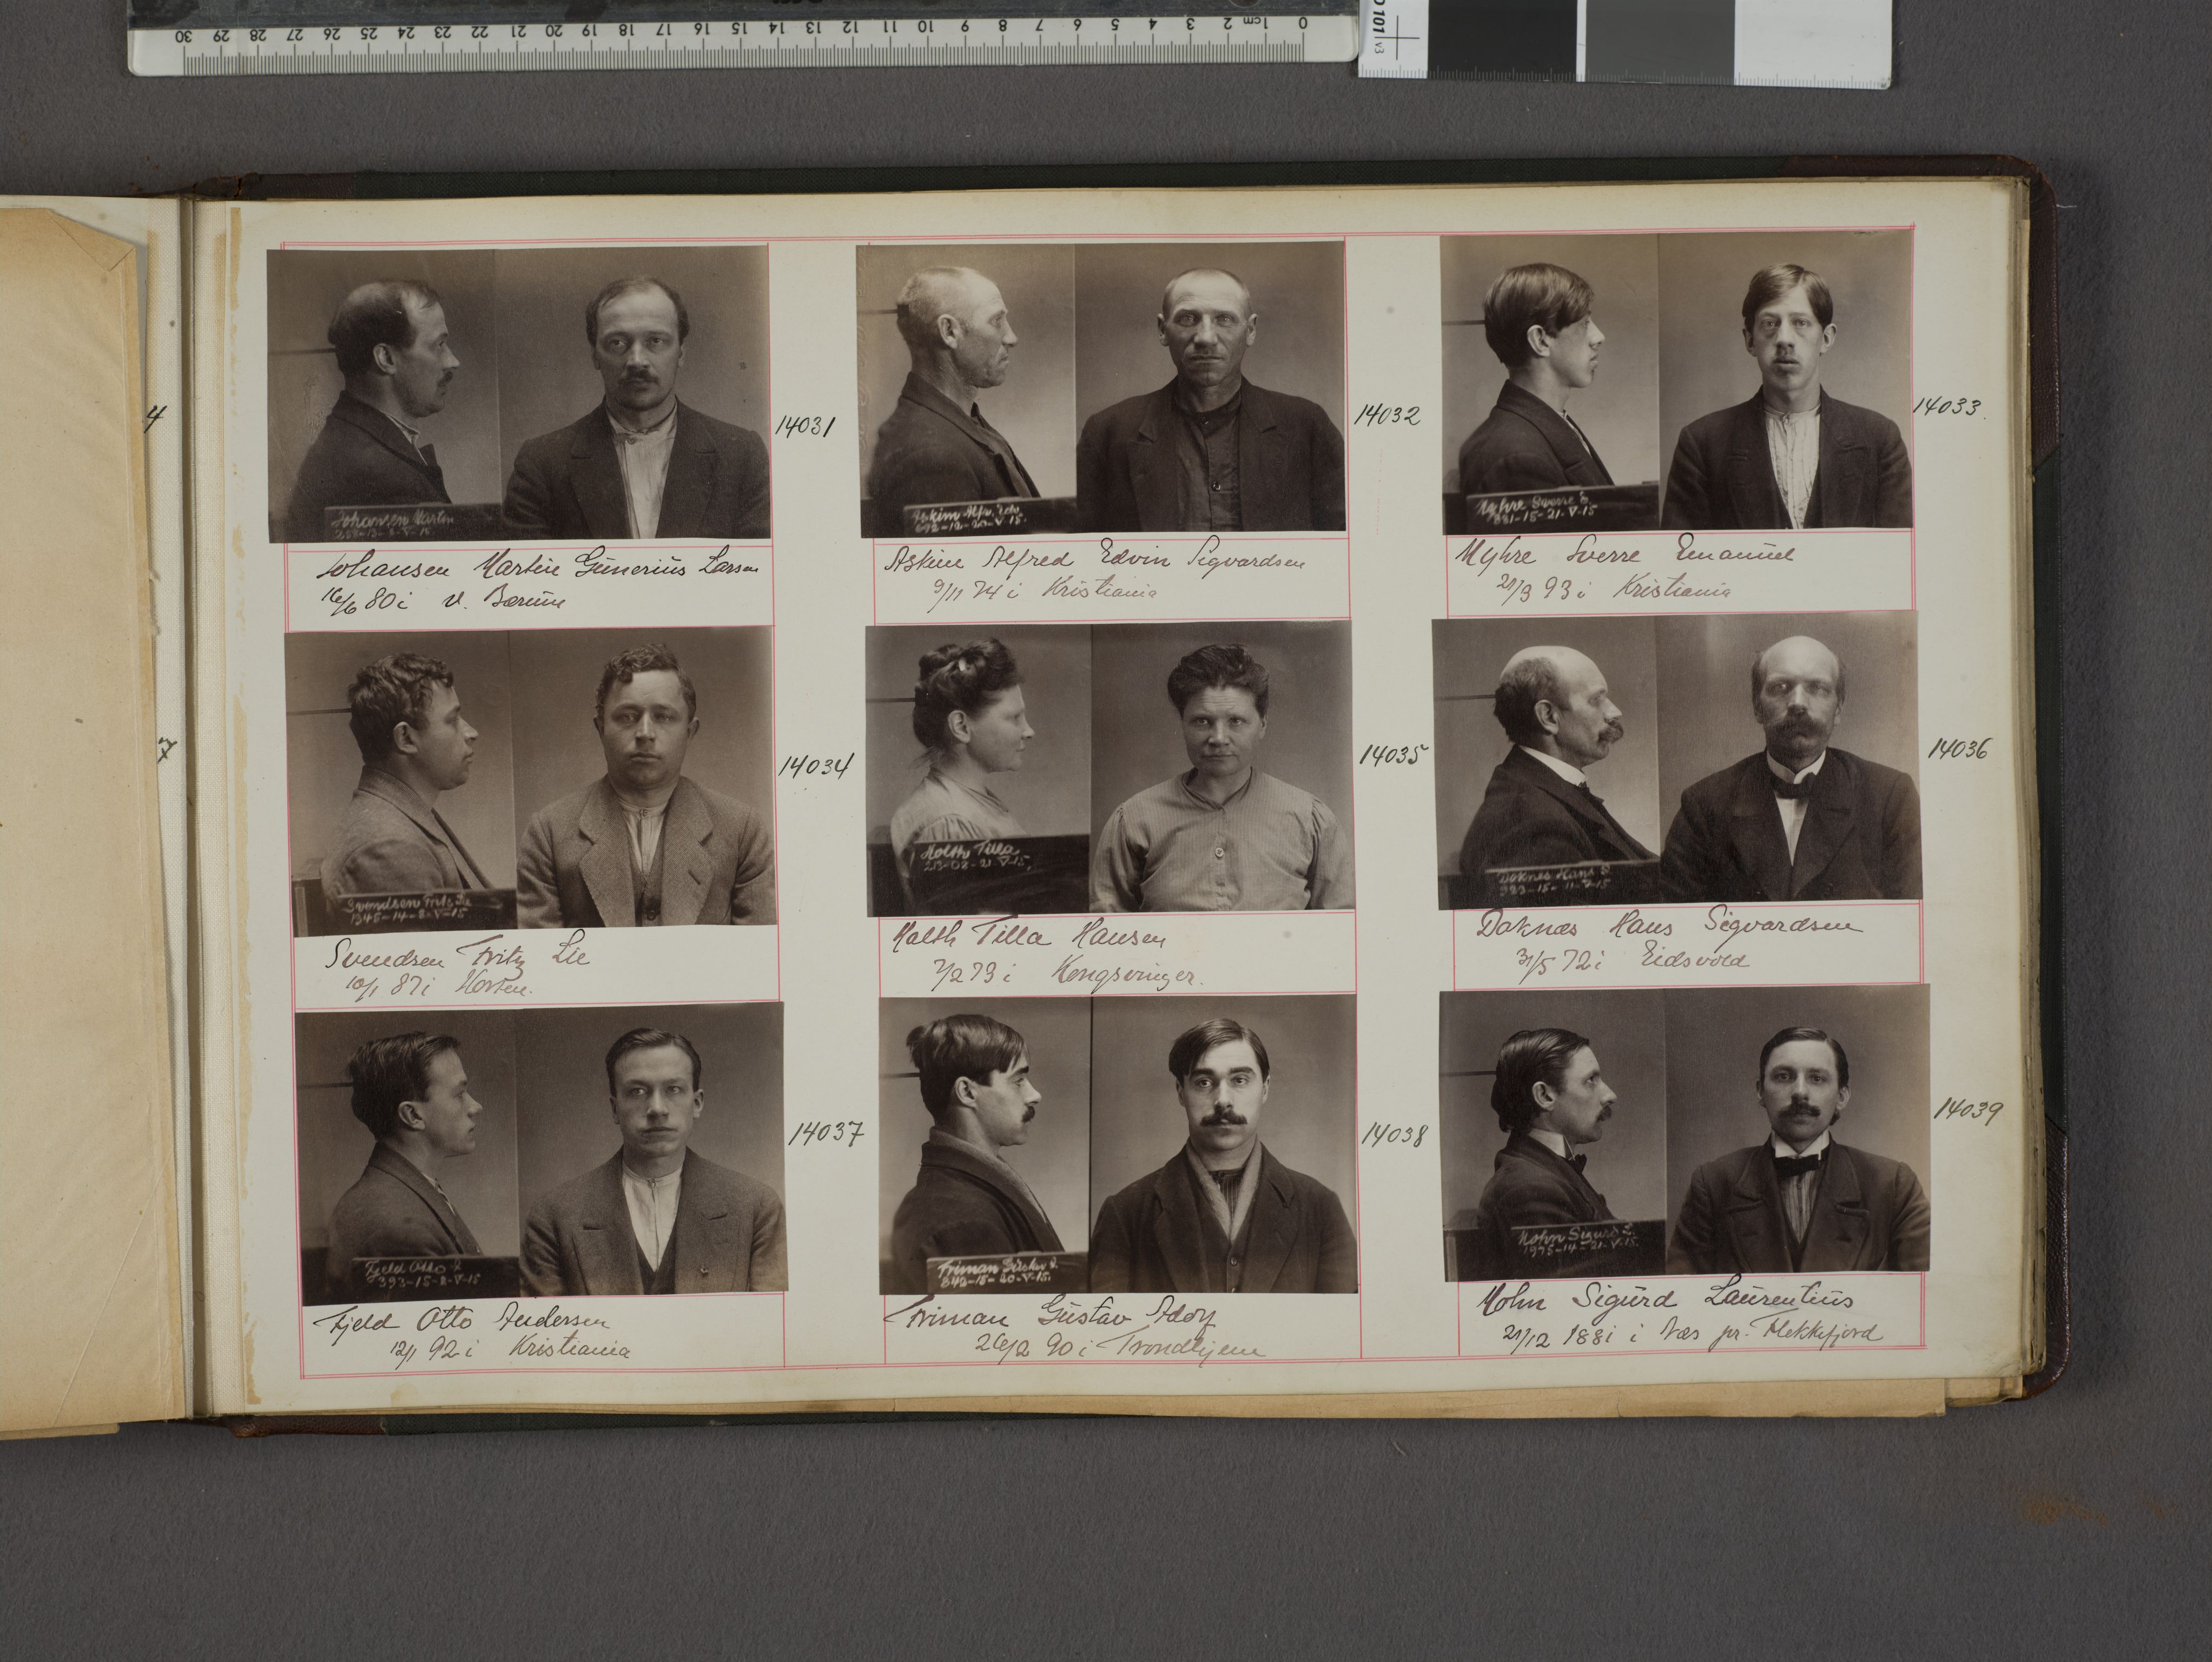 30 29 28 27 26 25 24 23 22 21 20 19 18 17 16 15 14 13 12 11 10 9 8 7 6 5 4 3 2 1cm 0
101 v3
4
7
14031
Johansen Martin
Johansen Martin Gunerius Larsen
16/6 80 i V. Bærum
14032
Askim Alfr. Edv.
692-12-20-V-15.
Askim Alfred Edvin Sigvardsen
9/11 74 i Kristiania
14033
Myhre Sverre E.
881-15-21-V-15
Myhre Sverre Emanuel
21/3 93 i Kristiania
14034
Svendsen Fritz Lie
1345-14-8-V-15
Svendsen Fritz Lie
10/1 87 i Horten.
14035
Holth Tilla
213-08-21-V-15.
Holth Tilla Hansen
7/2 73 i Kongsvinger.
14036
Doknes Hans S.
393-15-11-V-15
Doknæs Hans Sigvardsen
31/5 72 i Eidsvold
14037
Fjeld Otto A.
393-15-8-V-15
Fjeld Otto Andersen
12/1 92 i Kristiania
14038
Friman Gustav A.
842-15-20-V-15.
Friman Gustav Adolf
26/2 90 i Trondhjem
14039
Mohn Sigurd L.
1975-14-21-V-15.
Mohn Sigurd Laurentius
21/12 1881 i Næs pr. Flekkefjord